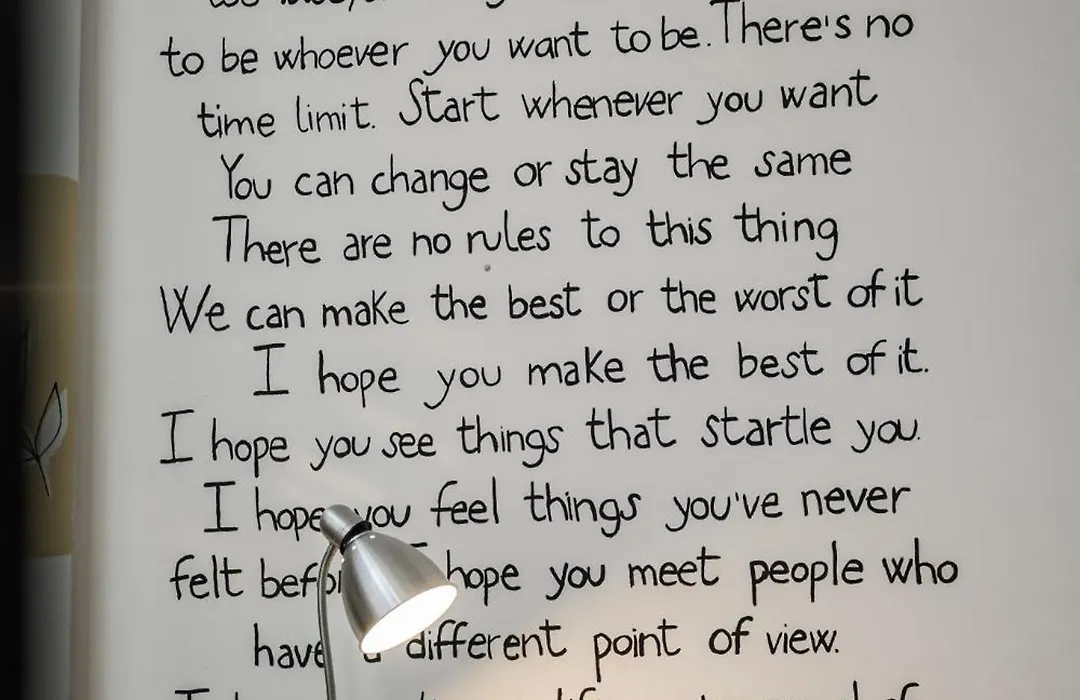 to be whoever you want to be. There's no
time limit. Start whenever you want
You can change or stay the same
There are no rules to this thing
We can make the best or the worst of it
I hope you make the best of it.
I hope you see things that startle you.
I hope you feel things you've never
felt before I hope you meet people who
have a different point of view.